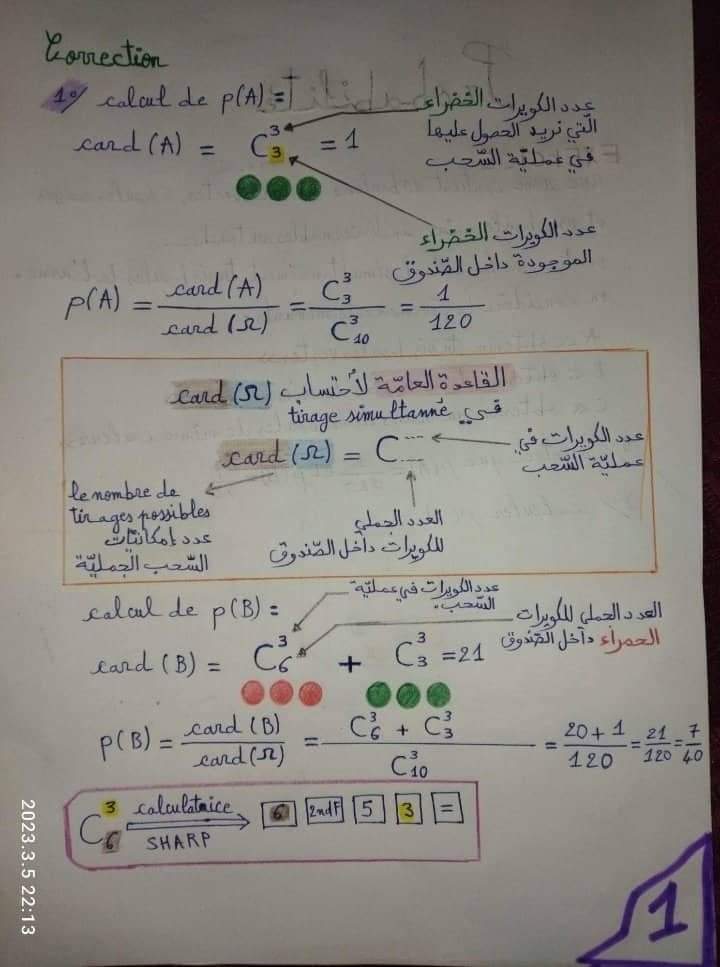 Correction
1° calcul de p(A) =
عدد الكويرات الخضراء
التّي نريد الحصول عليها
في عمليّة السّحب
card(A) = C₃³ = 1
عدد الكويرات الخضراء
الموجودة داخل الصّندوق
p(A) = card(A) / card(Ω) = C₃³ / C₁₀³ = 1 / 120
القاعدة العامّة لأحتساب card(Ω)
في tirage simultanné
card(Ω) = C
عدد الكويرات في
عمليّة السّحب
le nombre de
tirages possibles
عدد إمكانيّات
السّحب الجمليّة
العدد الجملي
للكويرات داخل الصّندوق
calcul de p(B) =
عدد الكويرات في عمليّة
السّحب.
العدد الجملي للكويرات
الحمراء داخل الصّندوق
card(B) = C₆³ + C₃³ = 21
p(B) = card(B) / card(Ω) = C₆³ + C₃³ / C₁₀³ = 20 + 1 / 120 = 21 / 120 = 7 / 40
C₆³ calculatrice SHARP 6 2ndF 5 3 =
1
2023.3.5 22:13